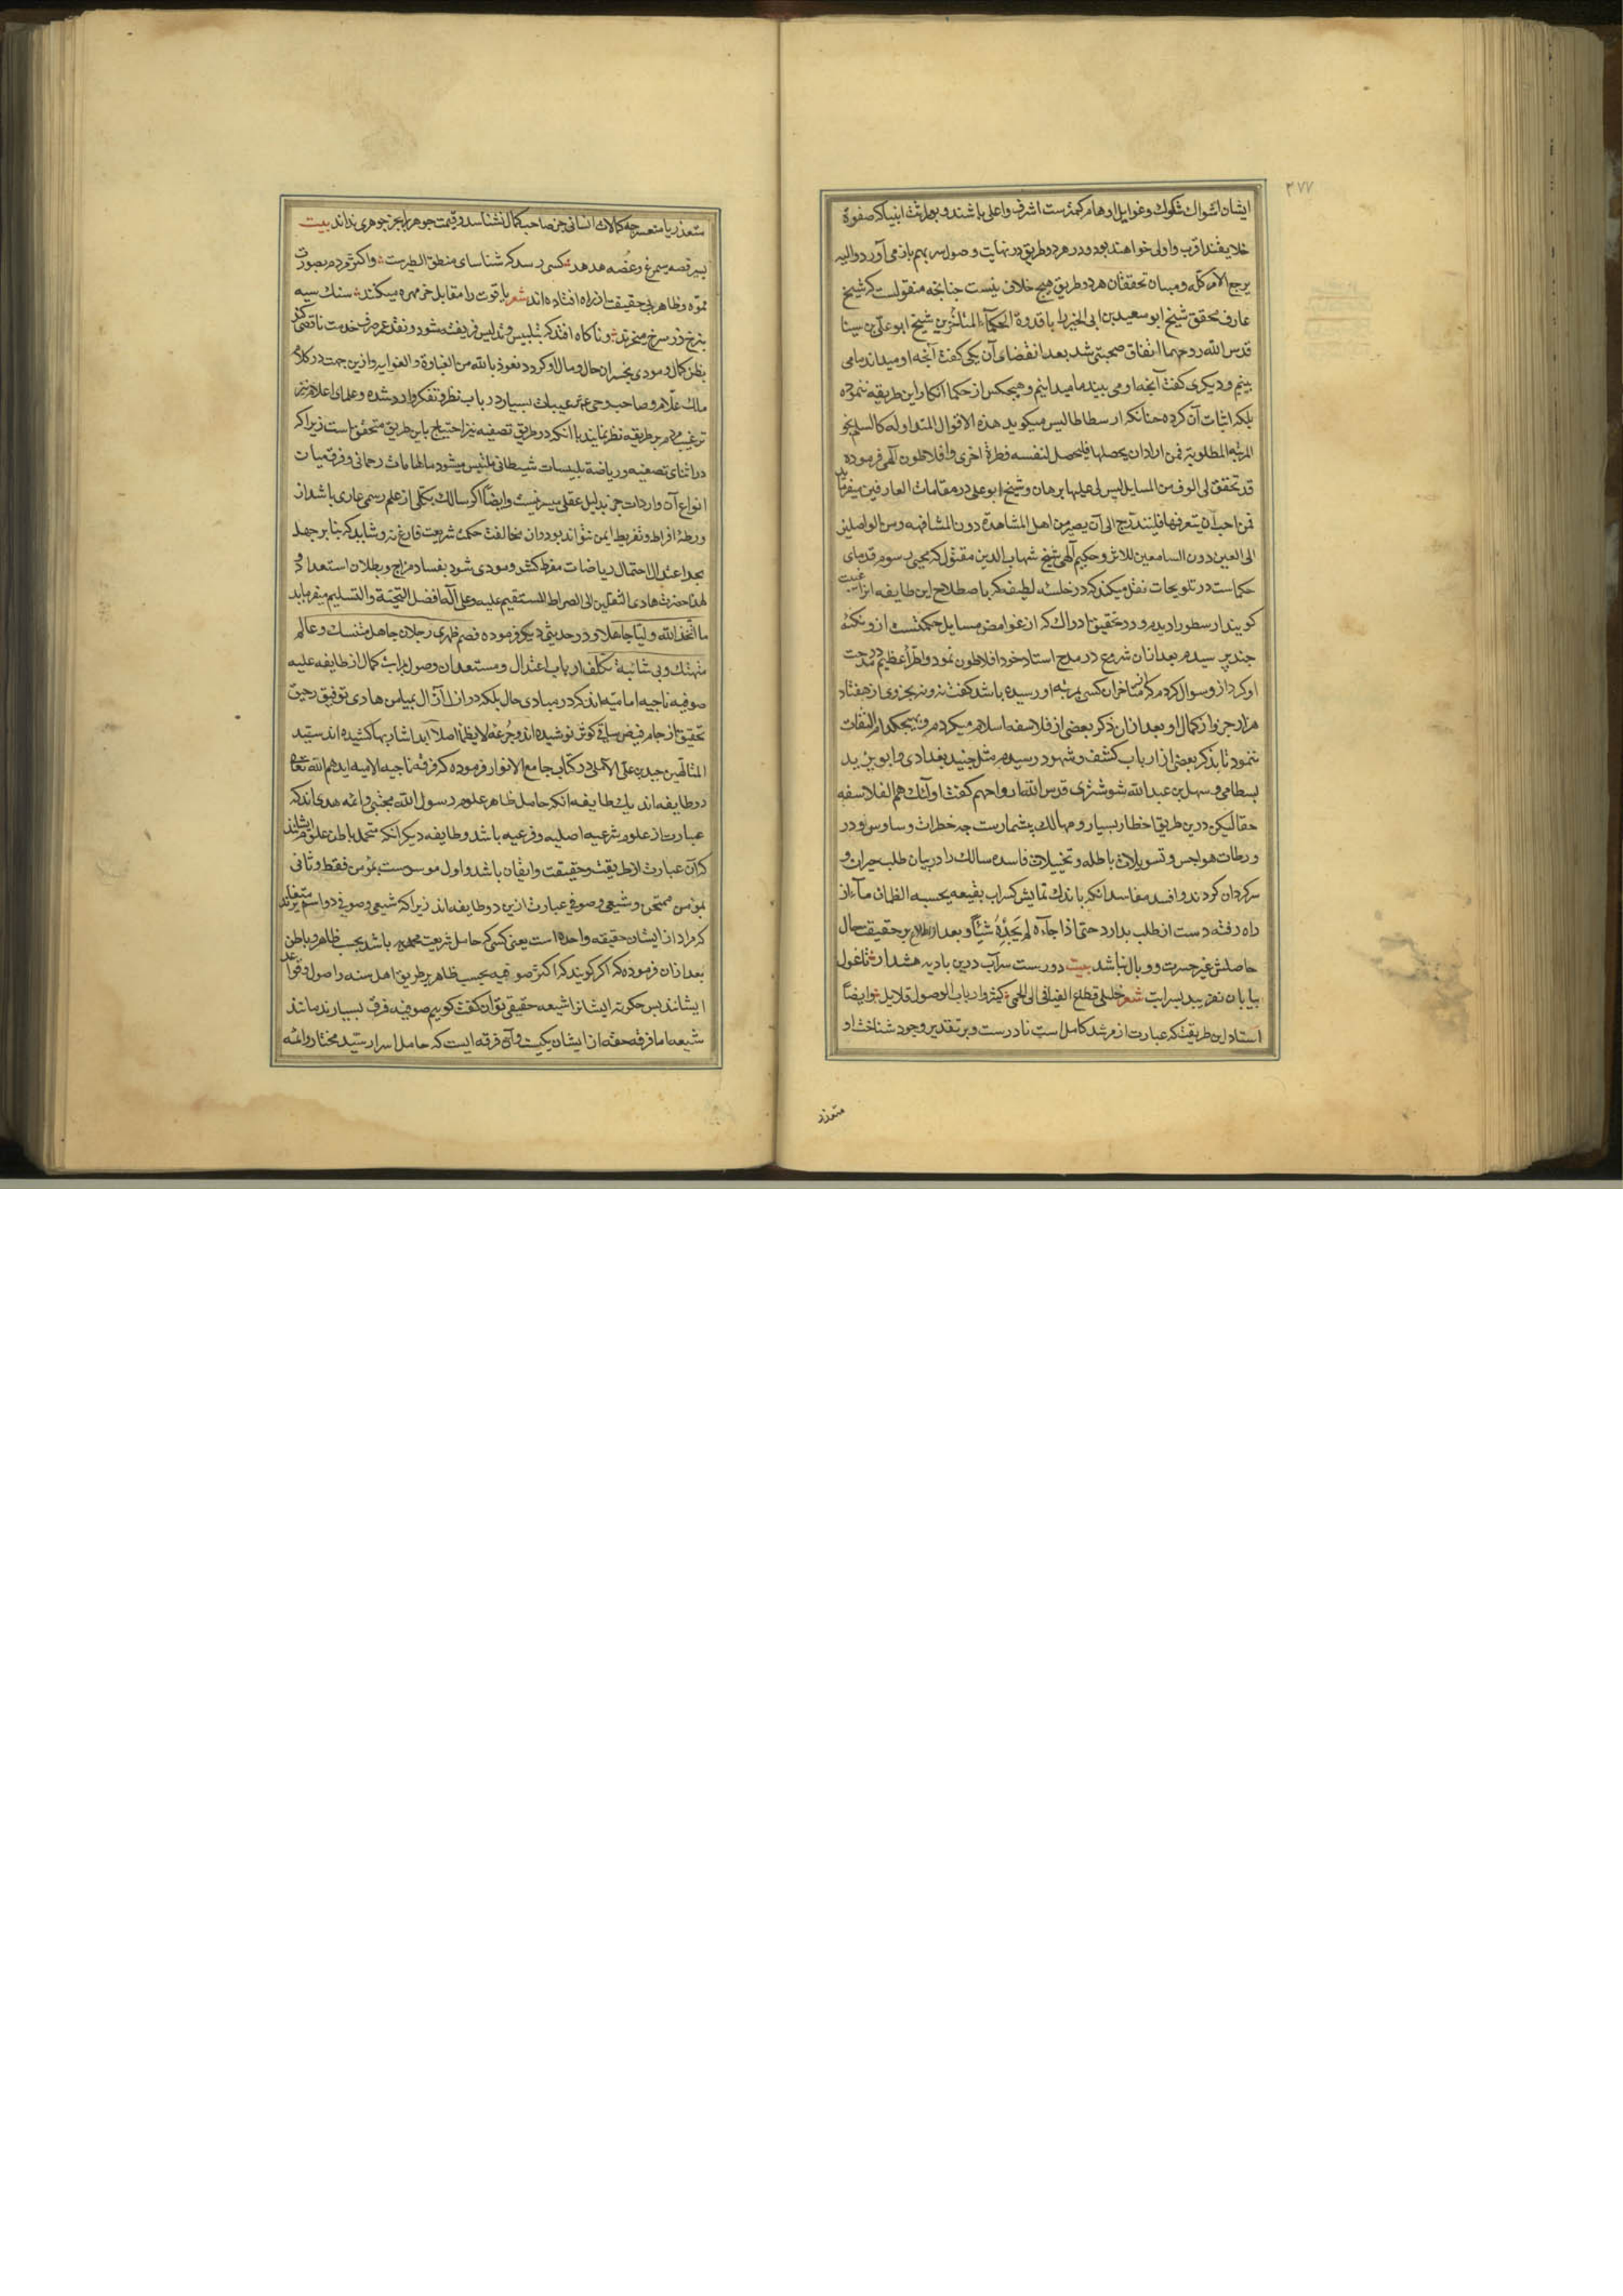 ۲۷۷
ایشان اشواك شكوك و غوایل اوهام كمترست اشرف و اعلی باشند و بوراثت انبیا كه صفوة
خلایقند اقرب و اولی خواهند بود و در هر دو طریق در نهایت وصول سر بهم باز می آورد و الیه
یرجع الامر كله و میان محققان هر دو طریق هیچ خلاف نیست جنانجه منقولست كه شیخ
عارف محقق شیخ ابو سعید بن ابی الخیر را با قدوة الحكمآء المتاخرین شیخ ابو علی بن سینا
قدس الله روحهما اتفاق صحبتی شد بعد از انقضای آن یكی كفت آنجه او میداند ما می
بینیم و دیكری كفت آنجه او می بیند ما میدانیم و هیچكس از حكما انكار این طریقه ننموده
بلكه اثبات آن كرده جنانكه ارسطاطالیس میكوید هذه الاقوال المتداوله كالسلم نحو
المرتبه المطلوبة فمن اراد ان یحصلها فلیحصل لنفسه فطرة اخری و افلاطون آلهی فرموده
قد تحقق لی الوف من المسایل لیس لی علیها برهان و شیخ ابو علی در مقامات العارفین میفرماید
فمن احب ان یتعرفها فلیتدرج الی آن یصیر من اهل المشاهدة دون المشافهه و من الواصلین
الی العین دون السامعین للاثر و حكیم آلهی شیخ شهاب الدین مقتول كه محیی رسوم قدمای
حكماست در تلویحات نقل میكند كه در خلسه لطیفه كه باصطلاح این طایفه انرا غیبت
كویند ارسطو را دیدم و در تحقیق ادراك كه از غوامض مسایل حكمتست ازو نكته
جند پرسیدم بعد ازان شروع در مدح استاد خود افلاطون نمود و اطرآء عظیم در مدحت
او كرد ازو سوال كردم كه از متاخران كسی بمرتبه او رسیده باشد كفت نه و نه بجزوی از هفتاد
هزار جزو از كمال او بعد ازان ذكر بعضی از فلاسفه اسلام میكردم و بهیچكدام التفات
ننمود تا بذكر بعضی از ارباب كشف و شهود رسیدم مثل جنید بغدادی و ابو یزید
بسطامی و سهل بن عبد الله شوشتری قدس الله ارواحهم كفت اولئك هم الفلاسفه
حقا لیكن درین طریق اخطار بسیار و مهالك بیشمارست جه خطرات وساوس و در
ورطات هواجس و تسویلات باطله و تخییلات فاسده سالك را در بیان طلب حیران و
سركردان كردند و افسد مفاسد انكه باندك نمایش كسراب بقیعه یحسبه الظمان مآء از
راه رفته دست از طلب بدارد حتی اذا جآءه لم یجده شیئا و بعد از اطلاع بر حقیقت حال
حاصلش غیر حسرت و وبال نباشد بیت دورست سرآب درین بادیه هشدار تا غول
بیابان نفریبد بسرابت شعر خلیلی قطاع الفیافی الی الحمی كثیر و ارباب الوصول قلایل و ایضا
استاد این طریقت كه عبارت از مرشد كامل است نادرست و بر تقدیر وجود شناخت او
متعذر
متعذر یا متعسر جه كمالات انسانی جز صاحب كمال نشناسد و قیمت جوهر را بجز جوهری نداند بیت
بسر قصه سیمرغ و غصه هدهد كسی رسد كه شناسای منطق الطیرست و اكثر مردم بصورت
مموه و ظاهر بی حقیقت از راه افتاده اند شعر یاقوت را مقابل خر مهره میكنند سنك سیه
بنرخ زر سرخ میخرند و ناكاه افتد كه بتلبیس و تدلیس فریفته شود و نقد عمر صرف خدمت ناقصی كند
بظن كمال و مودی بخسران حال و مال او كردد نعوذ بالله من الغباوة و الغوایه و ازین جهت در كلام
ملك علام و صاحب وحی ترغیبات بسیار در باب نظر و تفكر وارد شده و علمای اعلام نیز
ترغیب مردم بر طریقه نظر نمایند با انكه در طریق تصفیه نیز احتیاج باین طریق متحقق است زیرا كه
در اثنای تصفیه و ریاضة تلبیسات شیطانی ملتبس میشود بالهامات رحمانی و فرق میان
انواع آن واردات جز بدلیل عقلی میسر نیست و ایضا اكر سالك بكلی از علم رسمی عاری باشد از
ورطه افراط و تفریط ایمن نتواند بود و از مخالفت حكمت شریعت فارغ نه و شاید كه بنا بر جهل
بحد اعتدال احتمال ریاضات مفرط كشد و مودی شود بفساد مزاج و بطلان استعداد و
لهذا حضرت هادی الثقلین الی الصراط المستقیم علیه و علی آله افضل التحیة و التسلیم میفرماید
ما اتخذ الله ولیا جاهلا و در حدیثی دیكر فرموده قصم ظهری رجلان جاهل متنسك و عالم
متهتك و بی شائبه تكلف ارباب اعتدال و مستعدان وصول مراتب كمال از طایفه علیه
صوفیه ناجیه امامیه اند كه در مبادی حال بلكه در ازل آزال بمیامن هادی توفیق رحیق
تحقیق از جام فیض ساقی كوثر نوشیده اند و جرعه لا یظما اصلا ابدا شاربها كشیده اند سید
المتالهین حیدر بن علی الآملی در كتاب جامع الانوار فرموده كه فرقه ناجیه الامیه ایدهم الله تعالی
دو طایفه اند یك طایفه انكه حامل ظاهر علوم رسول الله مجتبی و ائمه هدی اند كه
عبارت از علوم شرعیه اصلیه و فرعیه باشد و طایفه دیكر انكه متحمل باطن علوم ایشانند
كه آن عبارت از طریقت و حقیقت و ایقان باشد و اول موسومست بمؤمن فقط و ثانی
بمؤمن ممتحن و شیعی و صوفی عبارت ازین دو طایفه اند زیرا كه شیعی و صوفی دو اسم متغایرند
كه مراد از ایشان حقیقه واحده است یعنی كسی كه حامل شریعت محمدیه باشد بحسب ظاهر و باطن
بعد ازان فرموده كه اكر كویند كه اكثر صوفیه بحسب ظاهر بر طریق اهل سنه و اصول و قواعد
ایشانند پس جكونه ایشانرا شیعه حقیقی توان كفت كوییم صوفیه فرق بسیارند مانند
شیعه اما فرقه حقه از ایشان یكیست و آن فرقه ایست كه حامل اسرار سید مختار و ائمه